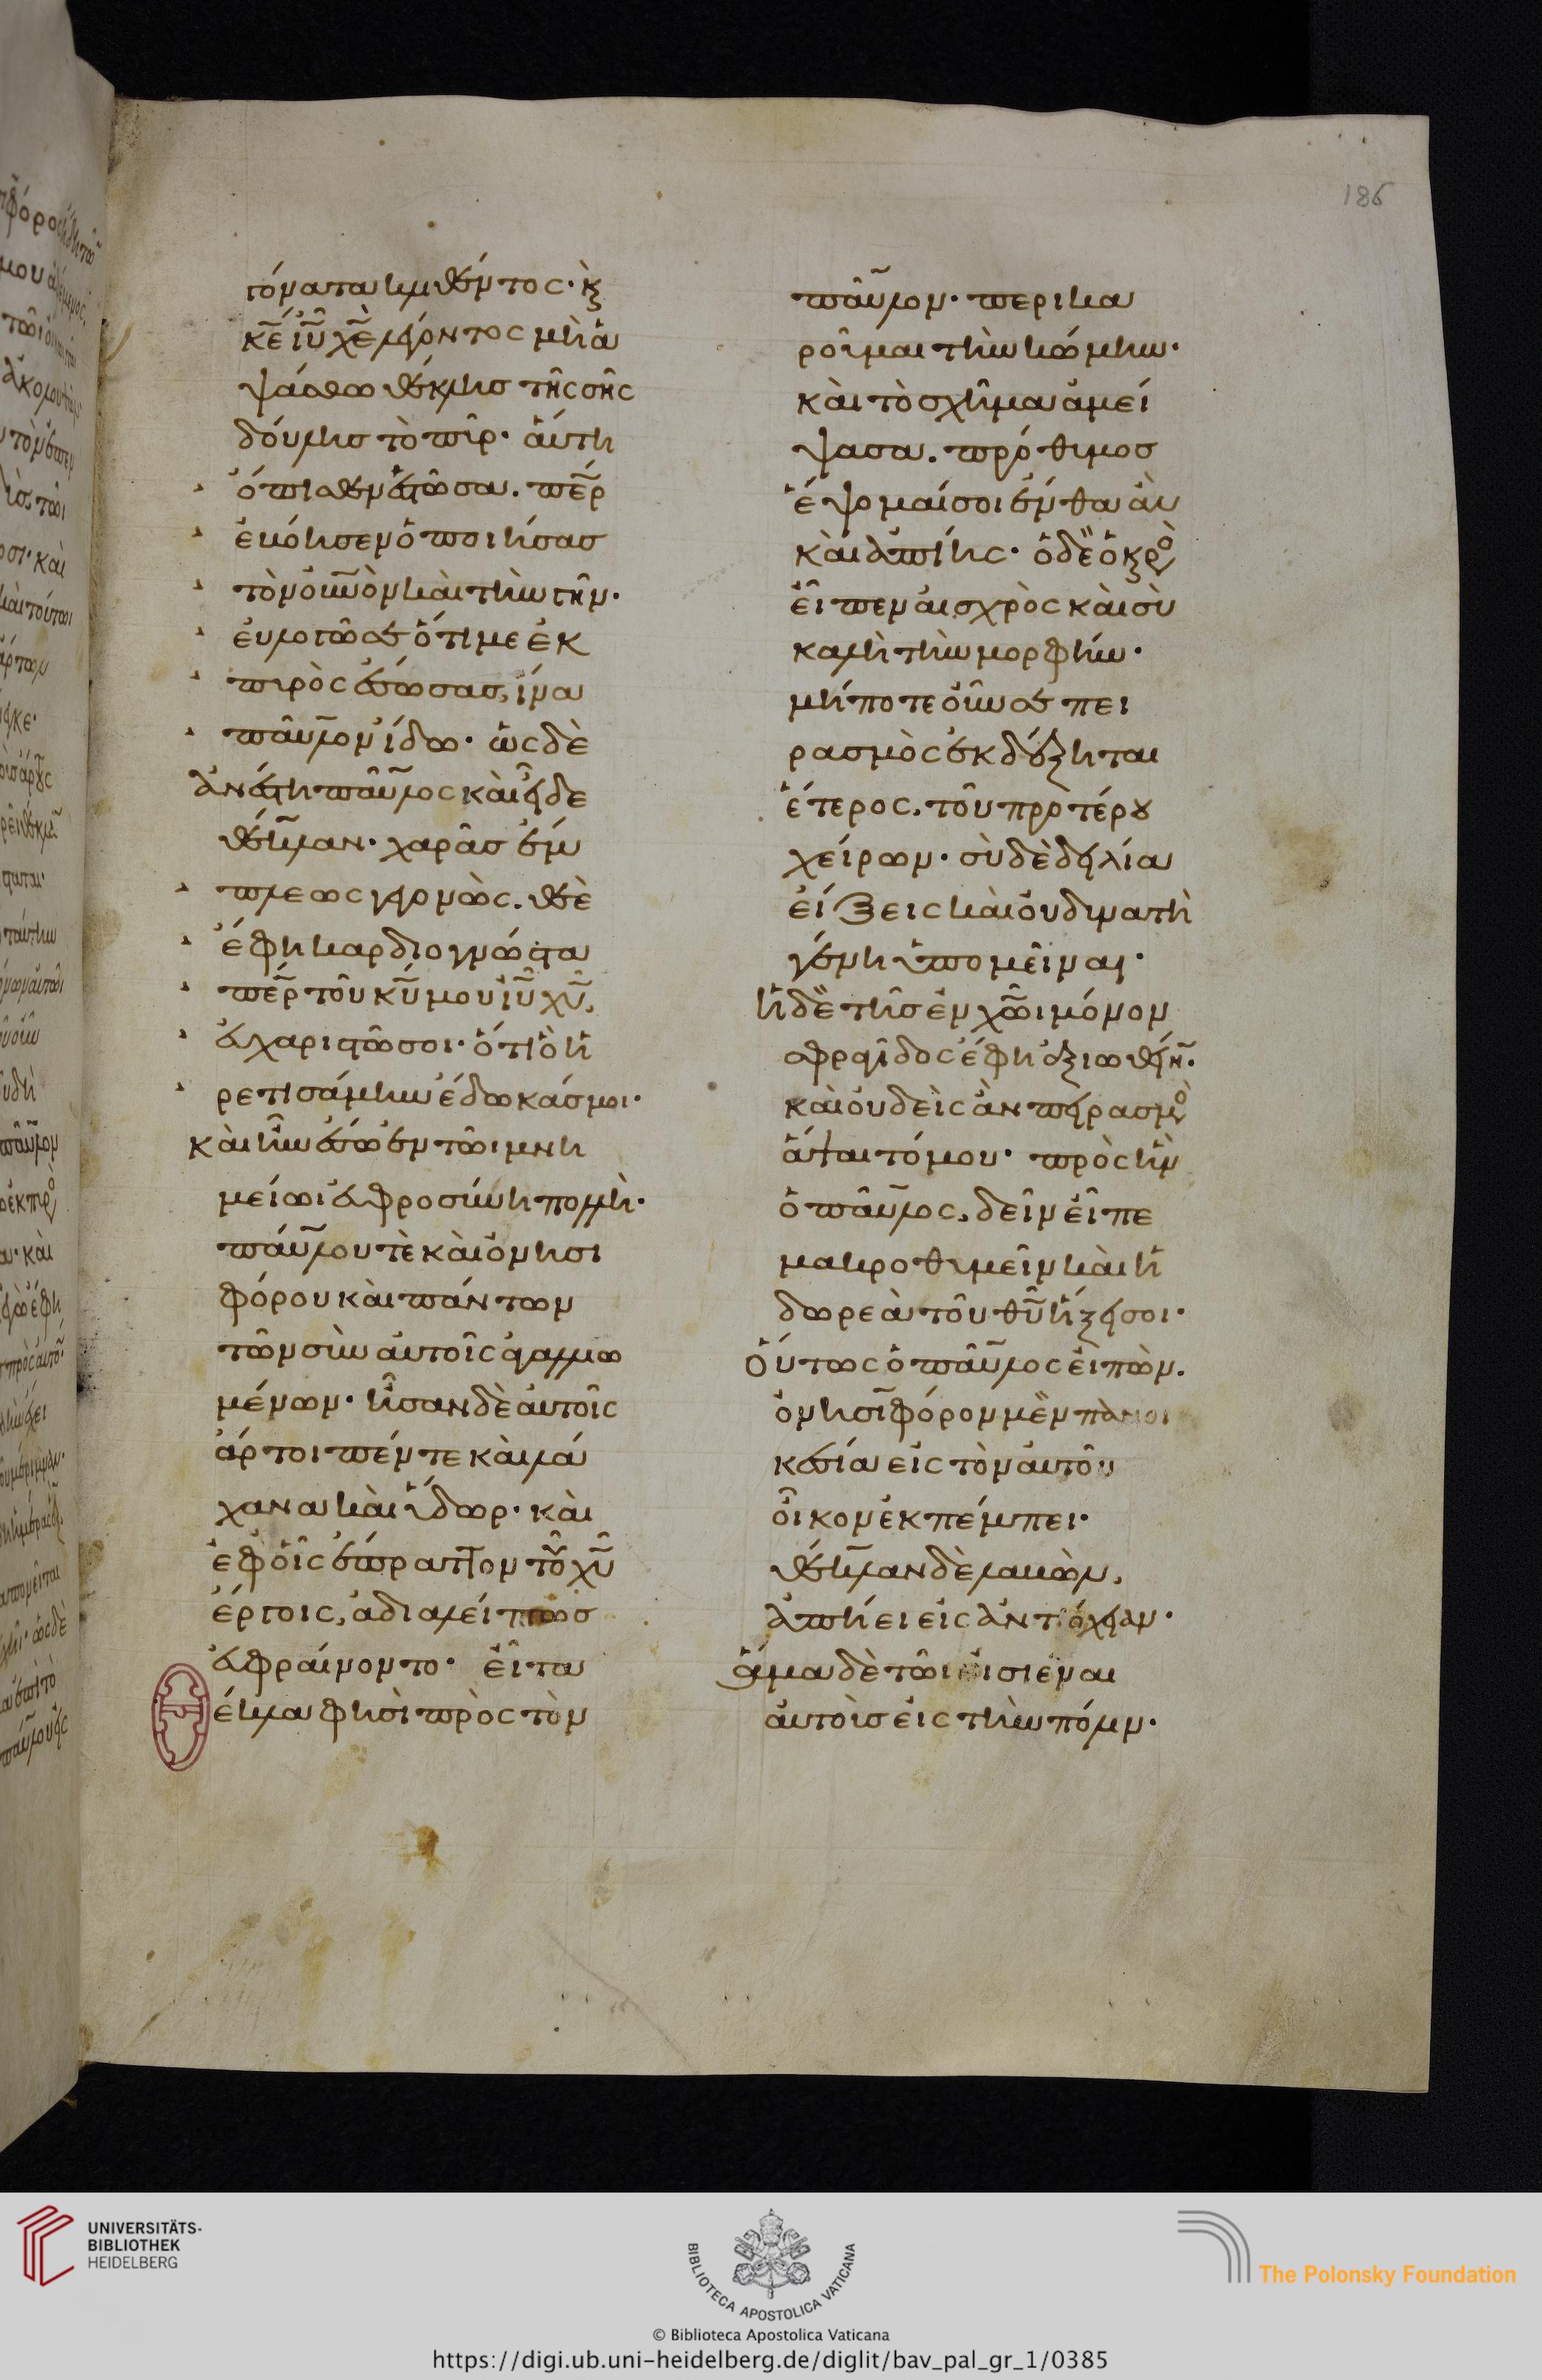 γόνατα κλιθέντος· κ̀
κ̅ε̅ ι̅υ̅ χ̅ε̅ λέγοντος μὴ ἅ
ψάσθω θέκλησ τῆς σῆς
δούλησ τὸ πῦρ· αὕτη
ὄπισθεν ἑστῶσα. π̅ε̅ρ
ἐβόησεν ὁ ποιήσασ
τὸν ο̅υ̅ν̅ὸν καὶ τὴν γῆν·
εὐλογῶ σε ὅτι με ἐκ
πυρὸς ἔσωσασ, ἵνα
παῦλον ἴδω· ὡς δὲ
ἀνέστη παῦλος καὶ εἶδε
θέκλαν· χαρᾶσ ἔμ
πλεως γεγονὼς. θ̅ὲ
ἔφη καρδιογνῶστα
π̅ε̅ρ τοῦ κ̅υ̅ μου ι̅υ̅ χ̅υ̅,
εὐχαριστῶ σοι· ὅτι ὃ ἡ
ρετισάμην ἔδωκάσ μοι·
καὶ ἦν ἔσω ἐν τῶι μνη
μείωι εὐφροσύνη πολλὴ·
παύλου τὲ καὶ ὀνησι
φόρου καὶ πάντων
τῶν σὺν αὐτοῖς ἀγαλλιω
μένων· ἦσαν δὲ αὐτοῖς
ἄρτοι πέντε καὶ λά
χανα καὶ ὕδωρ· καὶ
ἐφ οἷς ἔπραττον τοῦ χ̅υ̅
ἔργοις, ἀδιαλείπτωσ
εὐφραίνοντο· εἶτα
Θέκλα φησὶ πρὸς τὸν
παῦλον· περικα
ροῦμαι τὴν κόμην·
καὶ τὸ σχῆμα ἀμεί
ψασα. πρόθυμοσ
ἕψομαί σοι ἔνθα ἂν
καὶ ἀπίης· ὁ δὲ ὁ κρὸ
εἶπεν αἰσχρὸς καὶ σὺ
καλὴ τὴν μορφήν·
μήποτε οὖν σε πει
ρασμὸς ἐκδέξηται
ἕτερος, τοῦ προτέρου
χείρων· σὺ δὲ δειλία
εἴξεις καὶ οὐ δυνατὴ
γένη ὑπομεῖναι·
ἡ δὲ τῆσ ἐν χ̅ῶ̅ι μόνον
σφραγῖδος ἔφη ἀξιωθείην·
καὶ οὐδεὶς ἂν πειρασμὸ
ἅψαιτό μου· πρὸς ἣν
ὁ παῦλος, δεῖν εἶπε
μακροθυμεῖν καὶ ἡ
δωρεὰ τοῦ θ̅υ̅ ἥξει σοι·
Οὕτως ὁ παῦλος εἰπὼν.
ὀνησιφόρον μὲν πανοι
κεσία εἰς τὸν αὐτοῦ
οἶκον ἐκπέμπει·
θέκλαν δὲ λαβὼν,
ἀπήει εἰς ἀντιόχειαν·
ἅμα δὲ τῶι εἰσιέναι
αὐτοὺσ εἰς τὴν πόλιν·
186
UNIVERSITÄTS-
BIBLIOTHEK
HEIDELBERG
BIBLIOTECA APOSTOLICA VATICANA
The Polonsky Foundation
© Biblioteca Apostolica Vaticana
https://digi.ub.uni-heidelberg.de/diglit/bav_pal_gr_1/0385